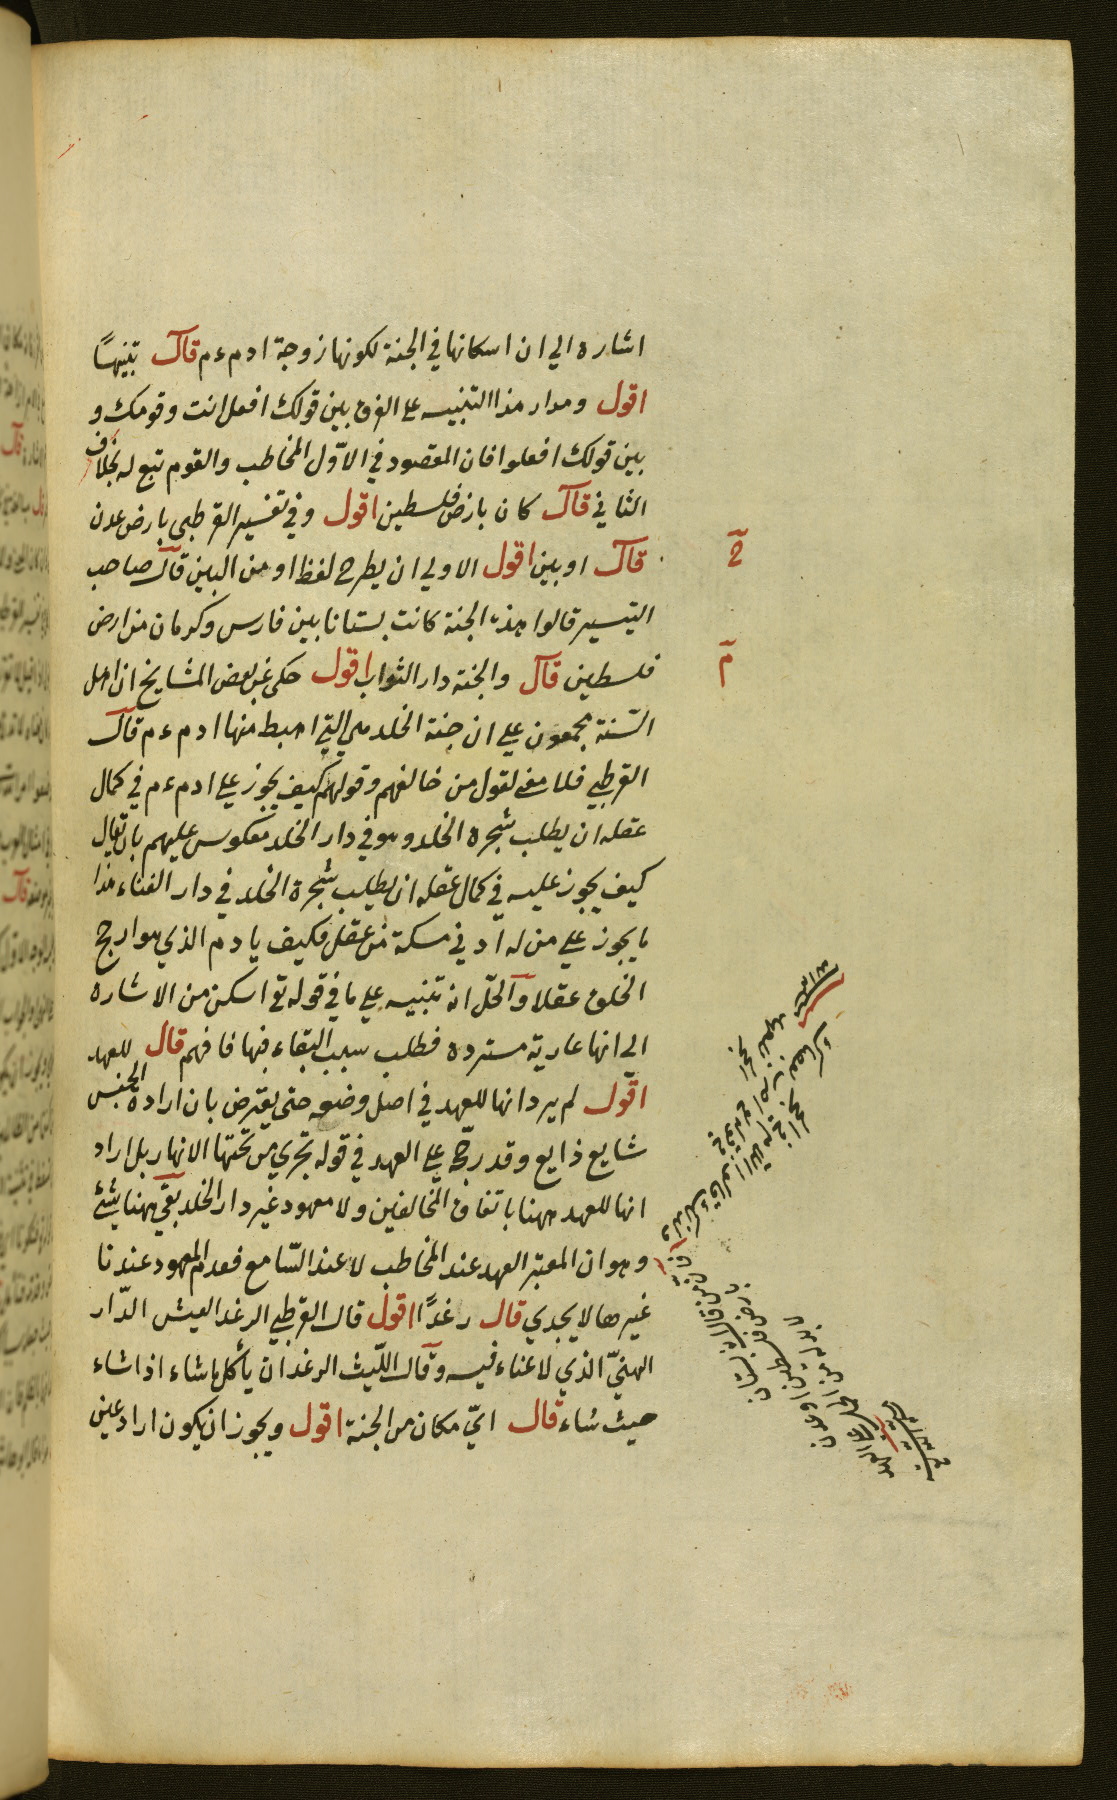 اشارة الي ان اسكانها في الجنة لكونها زوجة ادم ءم قال تنبيهًا
اقول ومدار هذا التنبيه علي الفرق بين قولك افعل انت وقومك و
بين قولك افعلوا فان المقصود في الاوّل المخاطب والقوم تبع له بخلاف
الثاني قال كان بارض فلسطين اقول وفي تفسير القرطبي بارض عدن
قال او بين اقول الاولي ان يطرح لفظ او من البين قال صاحب
التيسير قالوا هذه الجنة كانت بستانا بين فارس وكرمان من ارض
فلسطين قال والجنة دار الثواب اقول حكي عن بعض المشايخ ان اهل
السّنة مجمعون علي ان جنة الخلد هي التي اهبط منها ادم ءم قال
القرطبي فلا معني لقول من خالفهم وقولهم كيف يجوز علي ادم ءم في كمال
عقله ان يطلب شجرة الخلد وهو في دار الخلد معكوس عليهم بان يقال
كيف يجوز عليه في كمال عقله ان يطلب شجرة الخلد في دار الفناء هذا
ما يجوز علي من له ادني مسكة من عقل فكيف بادم الذي هو ارجح
الخلق عقلا والحلّ انه تنبيه علي ما في قوله تع اسكن من الاشارة
الي انها عارية مستردة فطلب سبب البقاء فيها فافهم قال للعهد
اقول لم يرد انها للعهد في اصل وضعه حتي يعترض بان ارادة الجنس
شايع ذايع وقد رجح علي العهد في قوله تجري من تحتها الانهار بل اراد
انها للعهد ههنا باتفاق المخالفين ولا معهود غير دار الخلد بقي ههنا شئ
وهو ان المعتبر العهد عند المخاطب لا عند السّامع فعدم المعهود عندنا
غيرها لا يجدي قال رغدًا اقول قال القرطبي الرغد العيش الدّار
الهنيّ الذي لا عناء فيه وقال الليث الرغد ان يأكل ما شاء اذا شاء
حيث شاء قال ايّ مكان من الجنة اقول ويجوز ان يكون اراد عين
ح
م